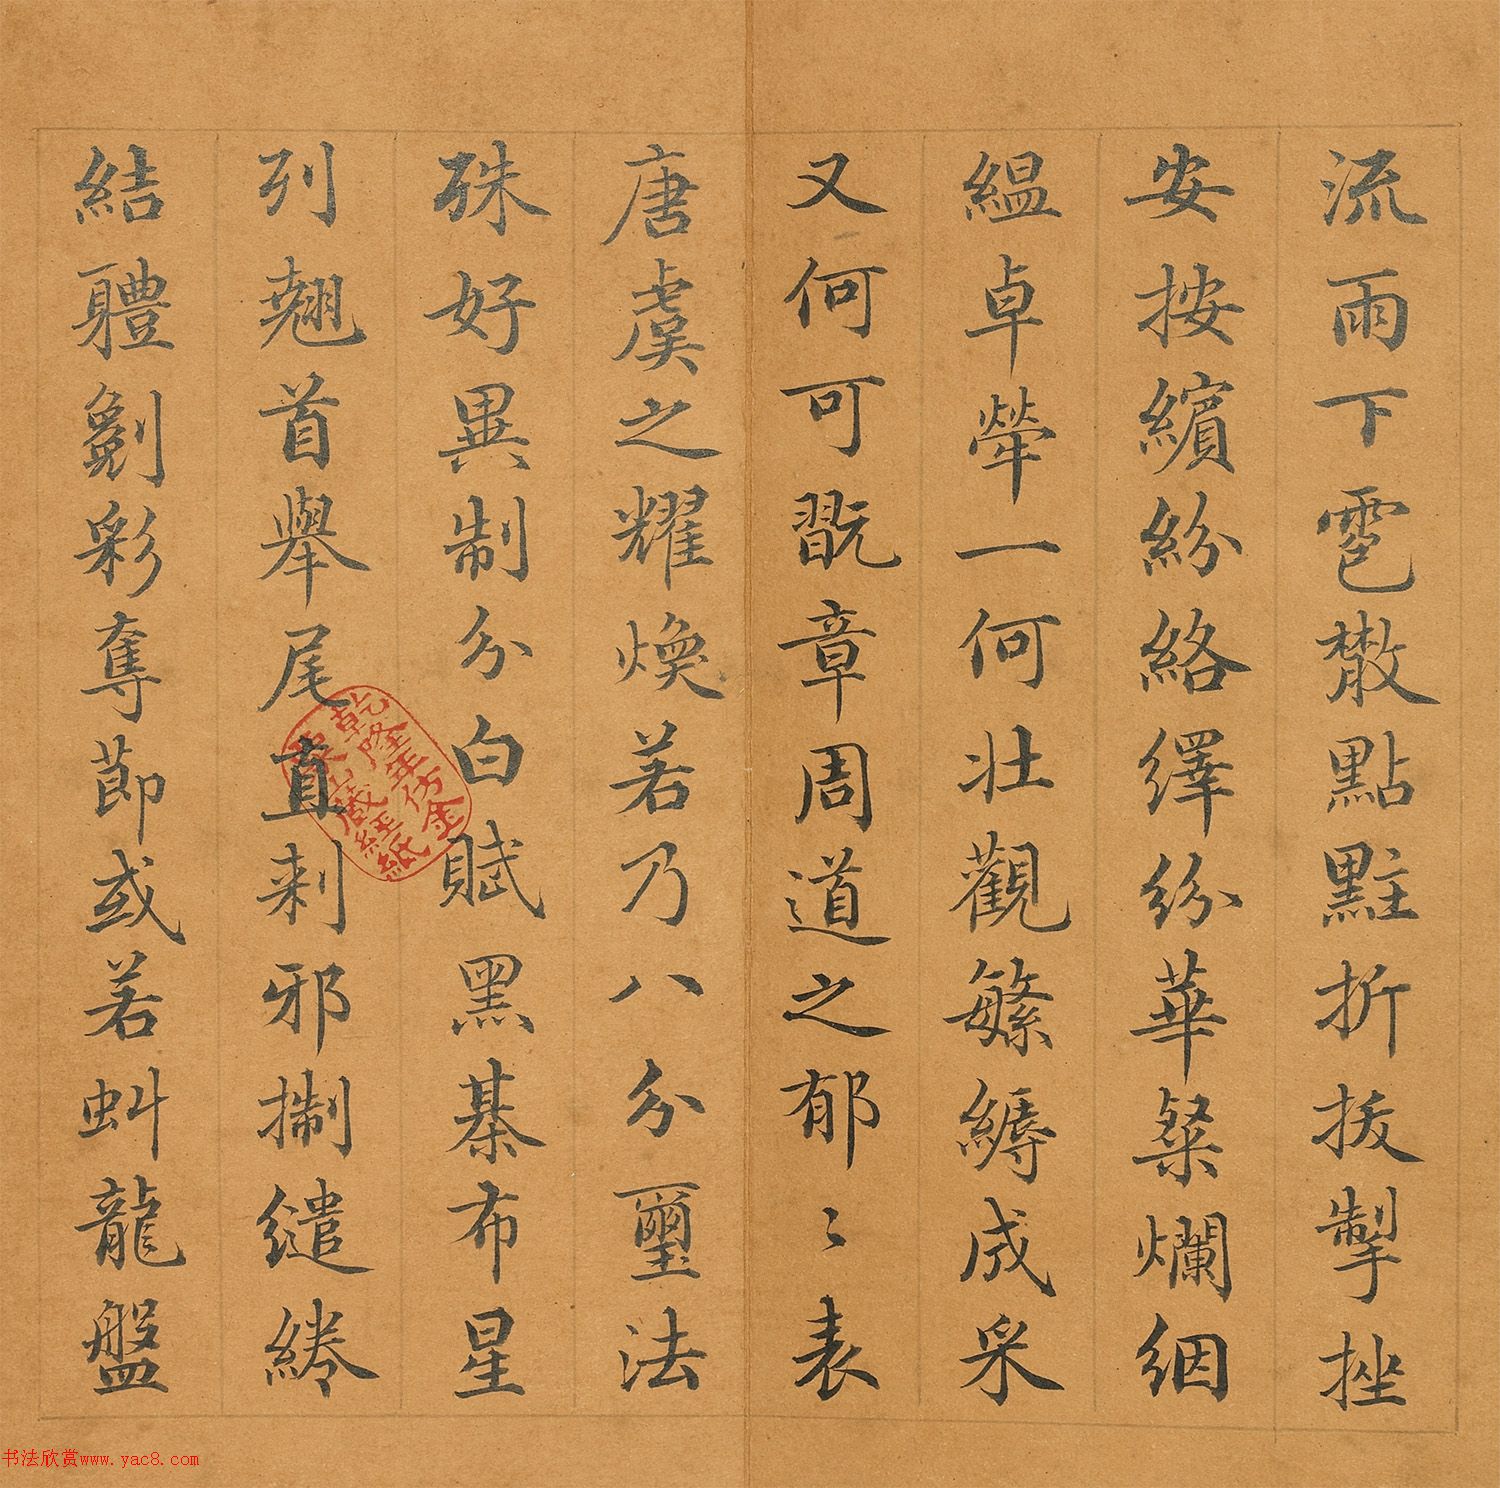 流雨下雹散點黈折拔掣挫
安按繽紛絡繹紛華粲爛絪
縕卓犖一何壯觀繁縟成采
又何可翫章周道之郁〻表
唐虞之耀煥若乃八分璽法
殊好異制分白賦黑棊布星
列翹首舉尾直刺邪掣繾綣
結體劖彩奪節或若虯龍盤
乾隆年仿金粟山藏經紙
书法欣赏www.yac8.com